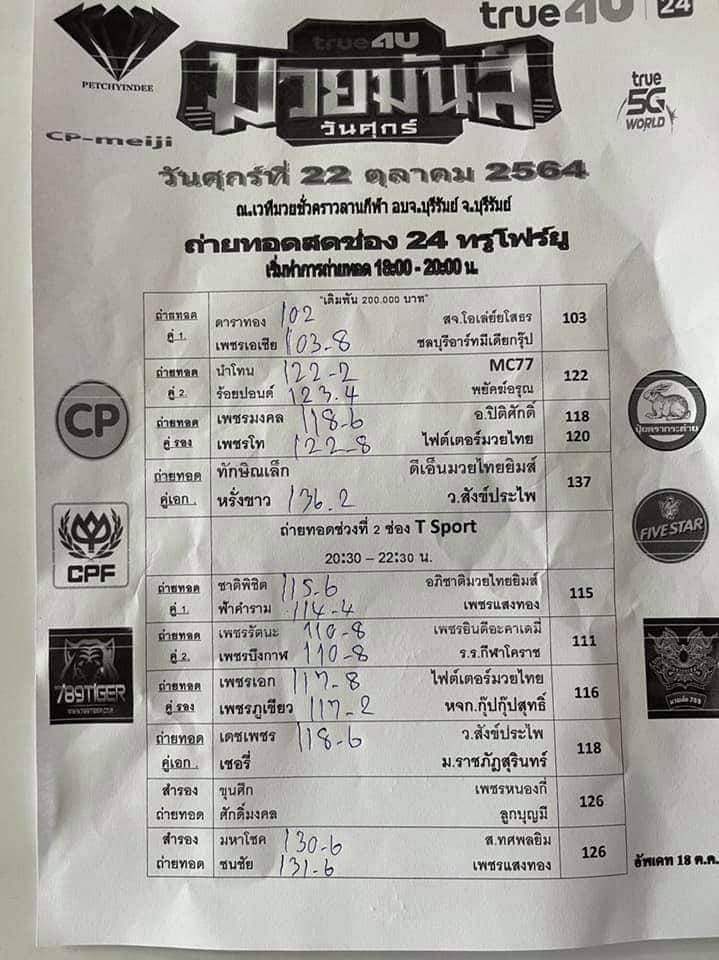 true4U 24
PETCHYINDEE
true4U
มวยมันส์
วันศุกร์
true
5G
WORLD
CP-meiji
วันศุกร์ที่ 22 ตุลาคม 2564
ณ.เวทีมวยชั่วคราวลานกีฬา อบจ.บุรีรัมย์ จ.บุรีรัมย์
ถ่ายทอดสดช่อง 24 ทรูโฟร์ยู
เริ่มทำการถ่ายทอด 18:00 - 20:00 น.
"เดิมพัน 200.000 บาท"
ถ่ายทอด ดาราทอง 102 สจ.โอเล่ย์ยโสธร 103
คู่ 1. เพชรเอเชีย 103-8 ชลบุรีอาร์ทมีเดียกรุ๊ป
ถ่ายทอด นำโทน 122-2 MC77 122
คู่ 2. ร้อยปอนด์ 123.4 พยัคฆ์อรุณ
ถ่ายทอด เพชรมงคล 118-6 อ.ปิติศักดิ์ 118
คู่ รอง เพชรโท 122-8 ไฟต์เตอร์มวยไทย 120
ถ่ายทอด ทักษิณเล็ก ดีเอ็นมวยไทยยิมส์ 137
คู่เอก . หรั่งขาว 136.2 ว.สังข์ประไพ
ถ่ายทอดช่วงที่ 2 ช่อง T Sport
20:30 – 22:30 น.
ถ่ายทอด ชาติพิชิต 115-6 อภิชาติมวยไทยยิมส์ 115
คู่ 1. ฟ้าคำราม 114-4 เพชรแสงทอง
ถ่ายทอด เพชรรัตนะ 110-8 เพชรยินดีอะคาเดมี่ 111
คู่ 2. เพชรบึงกาฬ 110-8 ร.ร.กีฬาโคราช
ถ่ายทอด เพชรเอก 117-8 ไฟต์เตอร์มวยไทย 116
คู่ รอง เพชรภูเขียว 117-2 หจก.กุ๊ปกุ๊ปสุทธิ์
ถ่ายทอด เดชเพชร 118-6 ว.สังข์ประไพ 118
คู่เอก . เชอรี่ ม.ราชภัฏสุรินทร์
สำรอง ขุนศึก เพชรหนองกี่ 126
ถ่ายทอด ศักดิ์มงคล ลูกบุญมี
สำรอง มหาโชค 130-6 ส.ทศพลยิม 126
ถ่ายทอด ชนชัย 131-6 เพชรแสงทอง
อัพเดท 18 ต.ค.
CP
CPF
789TIGER
ปุ๋ยตรากระต่าย
FIVE STAR